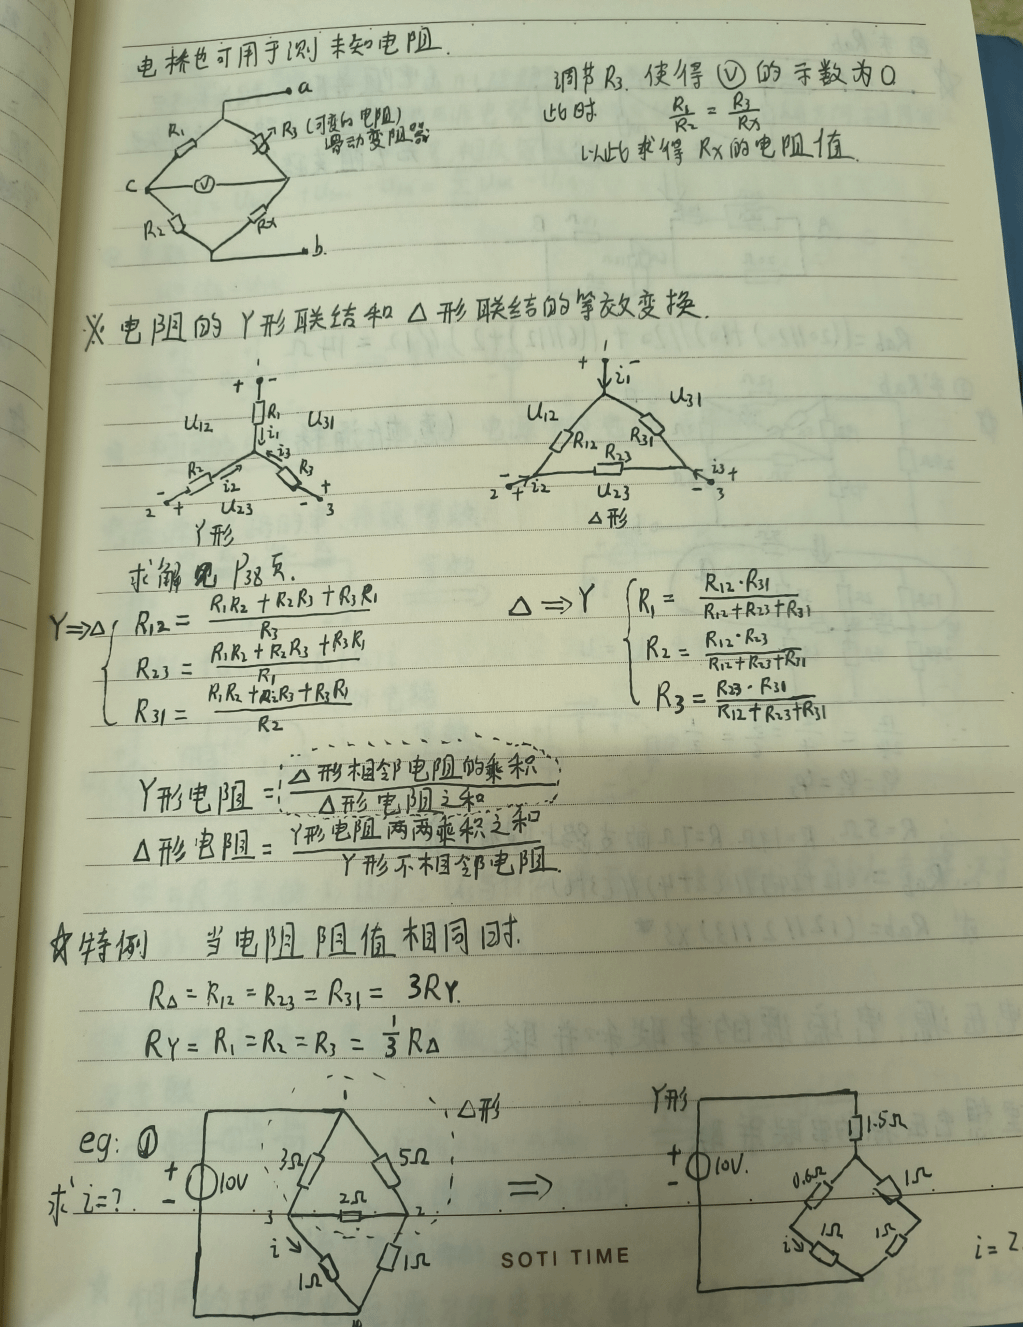 电桥也可用于测未知电阻.
调节 R3. 使得 Ⓥ 的示数为0
此时 R1/R2 = R3/Rx
以此求得 Rx的电阻值.
a
R1
R3 (可变的电阻)
滑动变阻器
C
V
R2
Rx
b.
※ 电阻的 Y形联结和 △形联结的等效变换.
1
+ -
U12 R1 U31
i1
i3
R2 R3
i2
- + U23 - +
2 3
Y形
1
+ -
i1
U12 U31
R12 R31
R23
- + i2 i3 + -
2 U23 3
△形
求解见 P38页.
Y⇒△
R12 = (R1R2 + R2R3 + R3R1)/R3
R23 = (R1R2 + R2R3 + R3R1)/R1
R31 = (R1R2 + R2R3 + R3R1)/R2
△ ⇒ Y
R1 = (R12·R31)/(R12+R23+R31)
R2 = (R12·R23)/(R12+R23+R31)
R3 = (R23·R31)/(R12+R23+R31)
Y形电阻 = △形相邻电阻的乘积/△形电阻之和
△形电阻 = Y形电阻两两乘积之和/Y形不相邻电阻.
☆特例 当电阻阻值相同时.
R△ = R12 = R23 = R31 = 3RY.
RY = R1 = R2 = R3 = 1/3 R△
eg: ①
求 i=?
1
△形
+
-
10V
3Ω 5Ω
2Ω
3 2
i
1Ω 1Ω
⇒
Y形
+
-
10V.
1.5Ω
0.6Ω 1Ω
i 1Ω 1Ω
i = 2
SOTI TIME